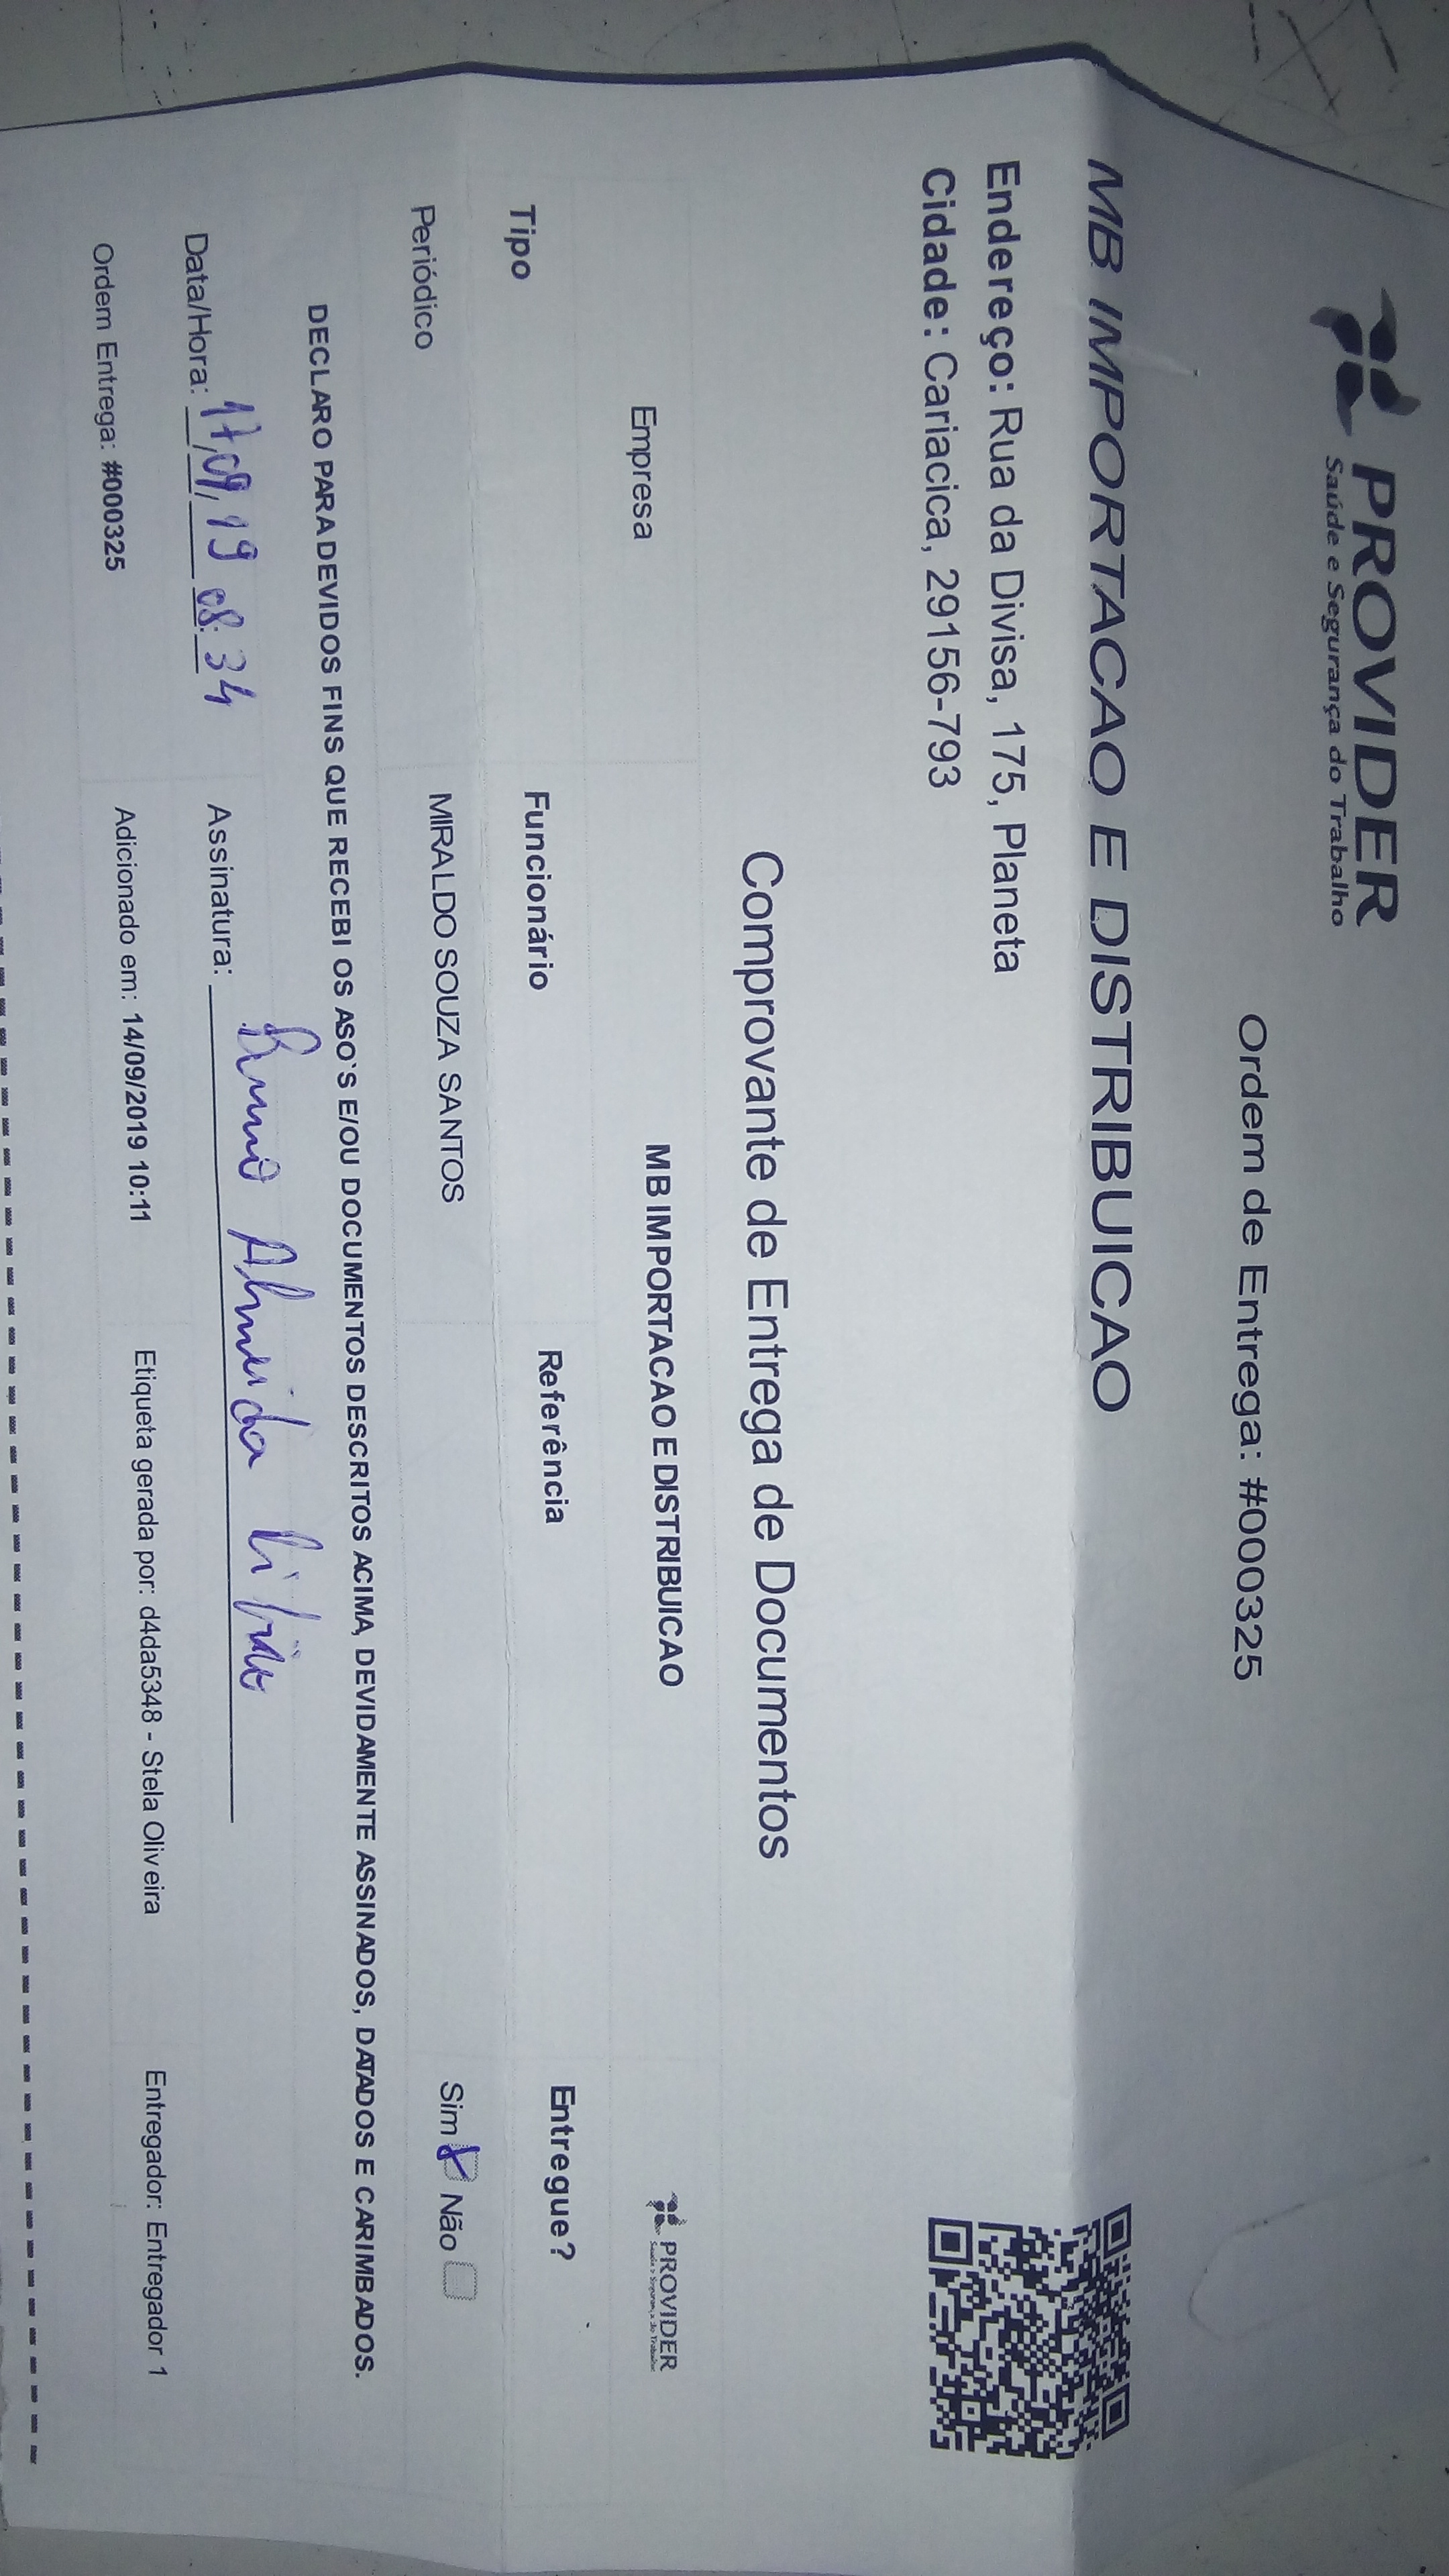 PROVIDER
Saúde e Segurança do Trabalho
Ordem de Entrega: #000325
MB IMPORTACAO E DISTRIBUICAO
Endereço: Rua da Divisa, 175, Planeta
Cidade: Cariacica, 29156-793
Comprovante de Entrega de Documentos
Empresa MB IMPORTACAO E DISTRIBUICAO PROVIDER
Saúde e Segurança do Trabalho
Tipo Funcionário Referência Entregue?
Periódico MIRALDO SOUZA SANTOS Sim Não
DECLARO PARA DEVIDOS FINS QUE RECEBI OS ASO'S E/OU DOCUMENTOS DESCRITOS ACIMA, DEVIDAMENTE ASSINADOS, DATADOS E CARIMBADOS.
Data/Hora: 17/09/19 08:34 Assinatura: Bruno Almeida
Ordem Entrega: #000325 Adicionado em: 14/09/2019 10:11 Etiqueta gerada por: d4da5348 - Stela Oliveira Entregador: Entregador 1